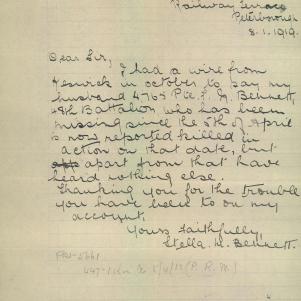 Railway Terrace
Peterborough
8.1.1919.
Dear Sir,
I had a wire from
Keswick in October, to say my
husband 4765 Pte. F. G. Bennett,
48th Battalion who has been
missing since the 5th of April
is now reported killed in
action on that date, but
apart from that have
heard nothing else.
Thanking you for the trouble
you have been to on my
account.
Yours faithfully,
Stella H. Bennett.